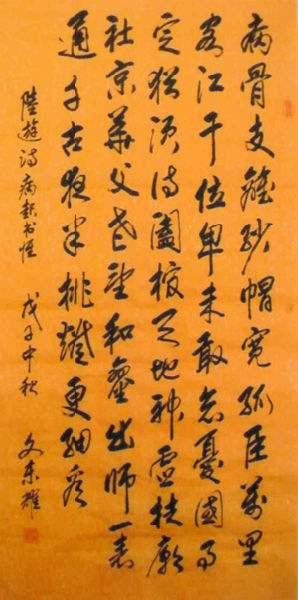 病骨支離紗帽寬孤臣萬里
客江干位卑未敢忘憂國事
定猶須待闔棺天地神靈扶廟
社京華父老望和鑾出師一表
通千古夜半挑燈更細看
陸遊詩病起書懷 戊子中秋 文東